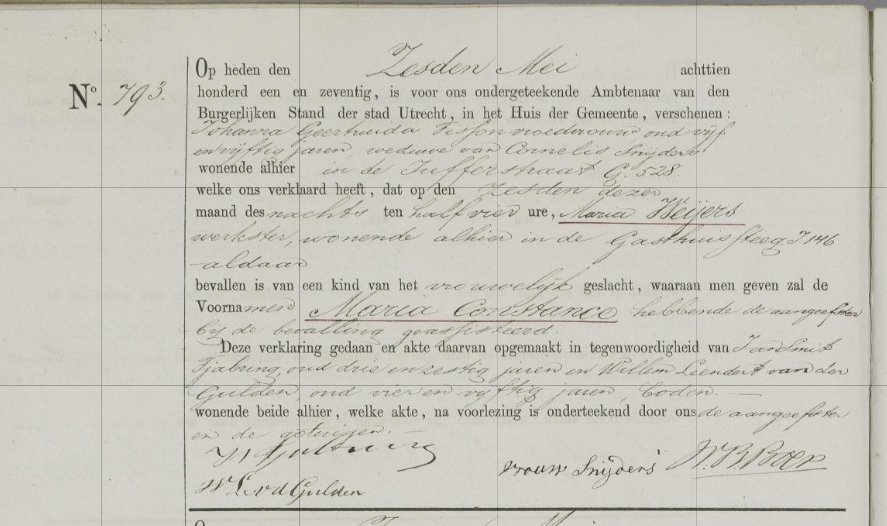 Op heden den Zesden Mei achttien
No. 793. honderd een en zeventig, is voor ons ondergeteekende Ambtenaar van den
Burgerlijken Stand der stad Utrecht, in het Huis der Gemeente, verschenen:
Johanna Geertruida Fisson vroedvrouw oud vijf
en vijftig jaren, weduwe van Cornelis Snijders
wonende alhier in de Jufferstraat G. 528.
welke ons verklaard heeft, dat op den zesden dezer
maand des nachts ten half vier ure, Maria Weijers
werkster, wonende alhier in de Gasthuissteeg I. 146
aldaar
bevallen is van een kind van het vrouwelijk geslacht, waaraan men geven zal de
Voornamen Maria Constance hebbende de aangeefster
bij de bevalling geassisteerd.
Deze verklaring gedaan en akte daarvan opgemaakt in tegenwoordigheid van Jan Smit
Tjabring, oud drie en zestig jaren en Willem Leendert van der
Gulden, oud vier en vijftig jaren, boden. —
wonende beide alhier, welke akte, na voorlezing is onderteekend door ons de aangeefster
en de getuigen. —
Vrouw Snijders W. B. Boer
W L v d Gulden